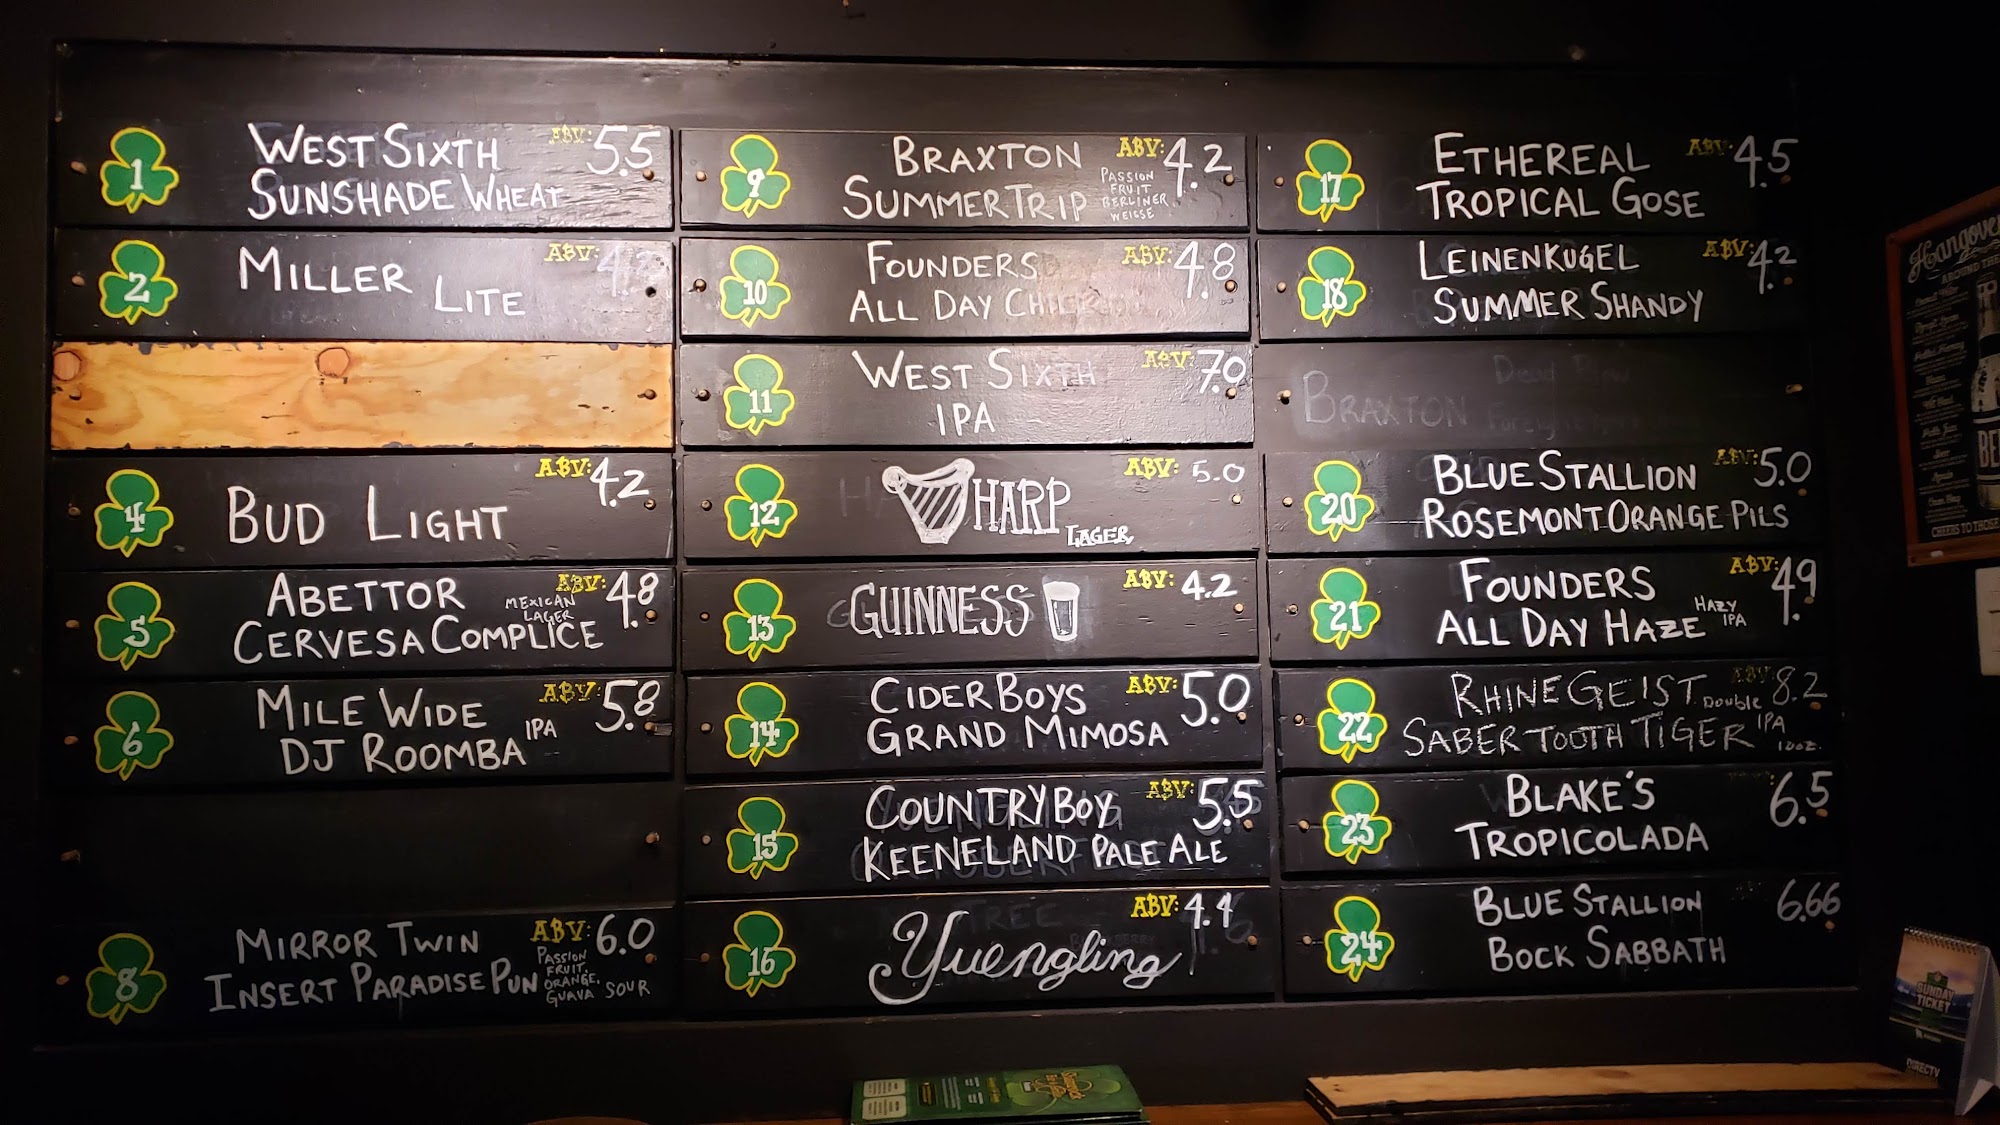 1
WEST SIXTH
ABV: 5.5
SUNSHADE WHEAT
2
MILLER LITE
ABV: 4.2
4
BUD LIGHT
ABV: 4.2
5
ABETTOR
ABV: 4.8
MEXICAN
LAGER
CERVESA COMPLICE
6
MILE WIDE
ABV: 5.8
DJ ROOMBA IPA
8
MIRROR TWIN
ABV: 6.0
INSERT PARADISE PUN
PASSION
FRUIT,
ORANGE,
GUAVA SOUR
9
BRAXTON
ABV: 4.2
SUMMER TRIP
PASSION
FRUIT
BERLINER
WEISSE
10
FOUNDERS
ABV: 4.8
ALL DAY
11
WEST SIXTH
ABV: 7.0
IPA
12
HARP
LAGER
ABV: 5.0
13
GUINNESS
ABV: 4.2
14
CIDERBOYS
ABV: 5.0
GRAND MIMOSA
15
COUNTRY BOY
ABV: 5.5
KEENELAND PALE ALE
16
Yuengling
ABV: 4.4
17
ETHEREAL
ABV: 4.5
TROPICAL GOSE
18
LEINENKUGEL
ABV: 4.2
SUMMER SHANDY
BRAXTON
20
BLUE STALLION
ABV: 5.0
ROSEMONT ORANGE PILS
21
FOUNDERS
ABV: 4.9
ALL DAY HAZE
HAZY
IPA
22
RHINEGEIST
ABV: 8.2
DOUBLE
IPA
SABER TOOTH TIGER
10oz.
23
BLAKE'S
6.5
TROPICOLADA
24
BLUE STALLION
6.66
BOCK SABBATH
Hangover
AROUND THE
BE
CHEERS TO THOSE
SUNDAY
TICKET
DIRECTV